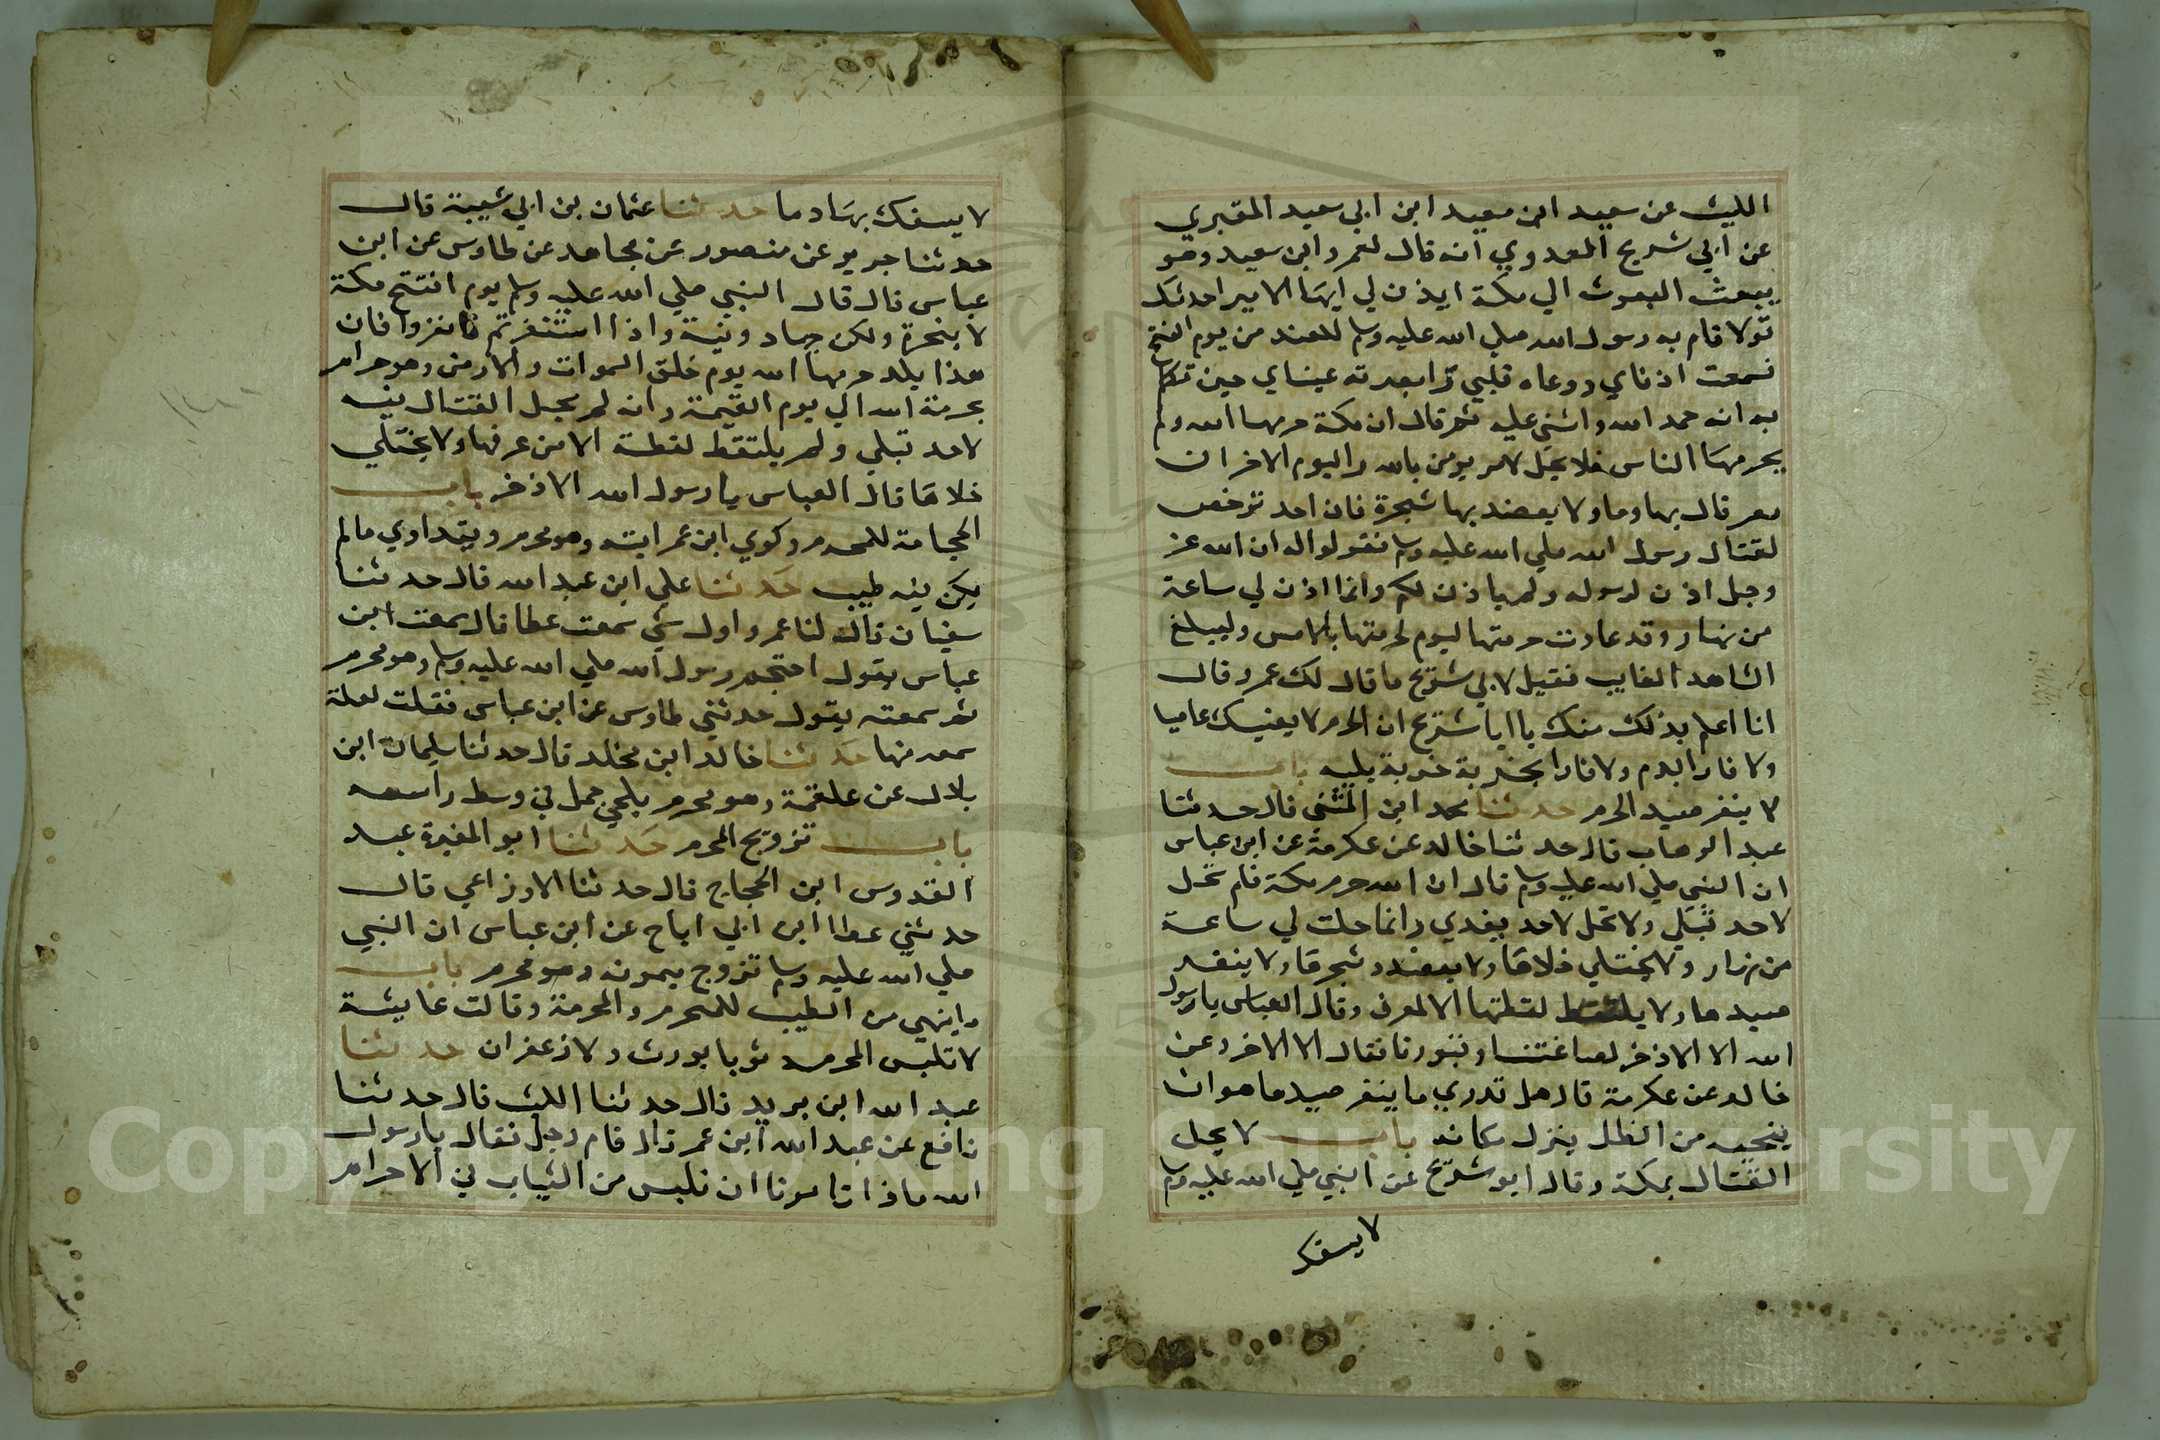 الليث عن سعيد ابن سعيد ابن ابي سعيد المقبري
عن ابي شريح العدوي انه قال لعمرو ابن سعيد وهو
يبعث البعوث الي مكة ايذن لي ايها الامير احدثك
قولا قام به رسول الله صلي الله عليه وسلم للغد من يوم الفتح
فسمعت اذناي ووعاه قلبي وابصرته عيناي حين تكلم
به انه حمد الله واثني عليه ثم قال ان مكة حرمها الله ولم
يحرمها الناس فلا يحل لامر يومن بالله واليوم الاخر ان
بها وما ولا يعضد بها شجرة فان احد ترخص
لقتال رسول الله صلي الله عليه وسلم فقولوا له ان الله عز
وجل اذن لرسوله ولم ياذن لكم وانما اذن لي ساعة
من نهار وقد عادت حرمتها ليوم لحرمتها بالامس وليبلغ
الشاهد الغايب فقيل لابي شريح ما قال لك عمرو قال
انا اعلم بذلك منك يا ابا شريح ان الحرم لا يعيذك عاصيا
ولا فارا بدم ولا فارا بخربة خربة بليه باب
لا ينفر صيد الحرم حدثنا محمد ابن المثني قال حدثنا
عبد الوهاب قال حدثنا خالد عن عكرمة عن ابن عباس
ان النبي صلي الله عليه وسلم قال ان الله حرم مكة فلم تحل
لاحد قبلي ولا تحل لاحد بعدي وانما حلت لي ساعة
من نهار ولا يختلي خلاها ولا يعضد شجرها ولا ينفر
صيدها ولا يلتقط لقطتها الا لمعرف وقال العباس يا رسول
الله الا الاذخر لصاغتنا وقبورنا فقال الا الاخر وعن
خالد عن عكرمة قال هل تدري ما ينفر صيدها هو ان
ينحيه من الظل ينزل مكانه باب لا يحل
القتال بمكة وقال ابو شريح عن النبي صلي الله عليه وسلم
لا يسفك
لا يسفك بها دما حدثنا عثمان بن ابي شيبة قال
حدثنا جرير عن منصور عن مجاهد عن طاوس عن ابن
عباس قال قال النبي صلي الله عليه وسلم يوم افتتح مكة
لا هجرة ولكن جهاد ونية واذا استنفرتم فانفروا فان
هذا بلد حرمها الله يوم خلق السموات والارض وهو حرام
بحرمة الله الي يوم القيمة وانه لم يحل القتال فيه
لاحد قبلي ولم يلتقط لقطة الا من عرفها ولا يختلي
خلاها قال العباس يا رسول الله الا ذخر باب
الحجامة للمحرم وكوي ابن عمر ابنه وهو محرم ويتداوي ما لم
يكن فيه طيب حدثنا علي ابن عبد الله قال حدثنا
سفيان قال لنا عمرو اول شي سمعت عطا قال سمعت ابن
عباس يقول احتجم رسول الله صلي الله عليه وسلم وهو محرم
ثم سمعته يقول حدثني طاوس عن ابن عباس فقلت لعلة
سمعه منها حدثنا خالد ابن مخلد قال حدثنا سليمان ابن
بلال عن علقمة وهو محرم بلحي جمل في وسط راسه
باب تزويج المحرم حدثنا ابو المغيرة عبد
القدوس ابن الحجاج قال حدثنا الاوزاعي قال
حدثني عطا ابن ابي اباح عن ابن عباس ان النبي
صلي الله عليه وسلم تزوج ميمونه وهو محرم باب
ما ينهي من الطيب للمحرم والمحرمة وقالت عايشة
لا تلبس المحرمه ثوبا بورث ولا زعفران حدثنا
عبد الله ابن يريد قال حدثنا الليث قال حدثنا
نافع عن عبد الله ابن عمر قال قام رجل فقال يا رسول
الله ماذا تامرنا ان نلبس من الثياب في الاحرام